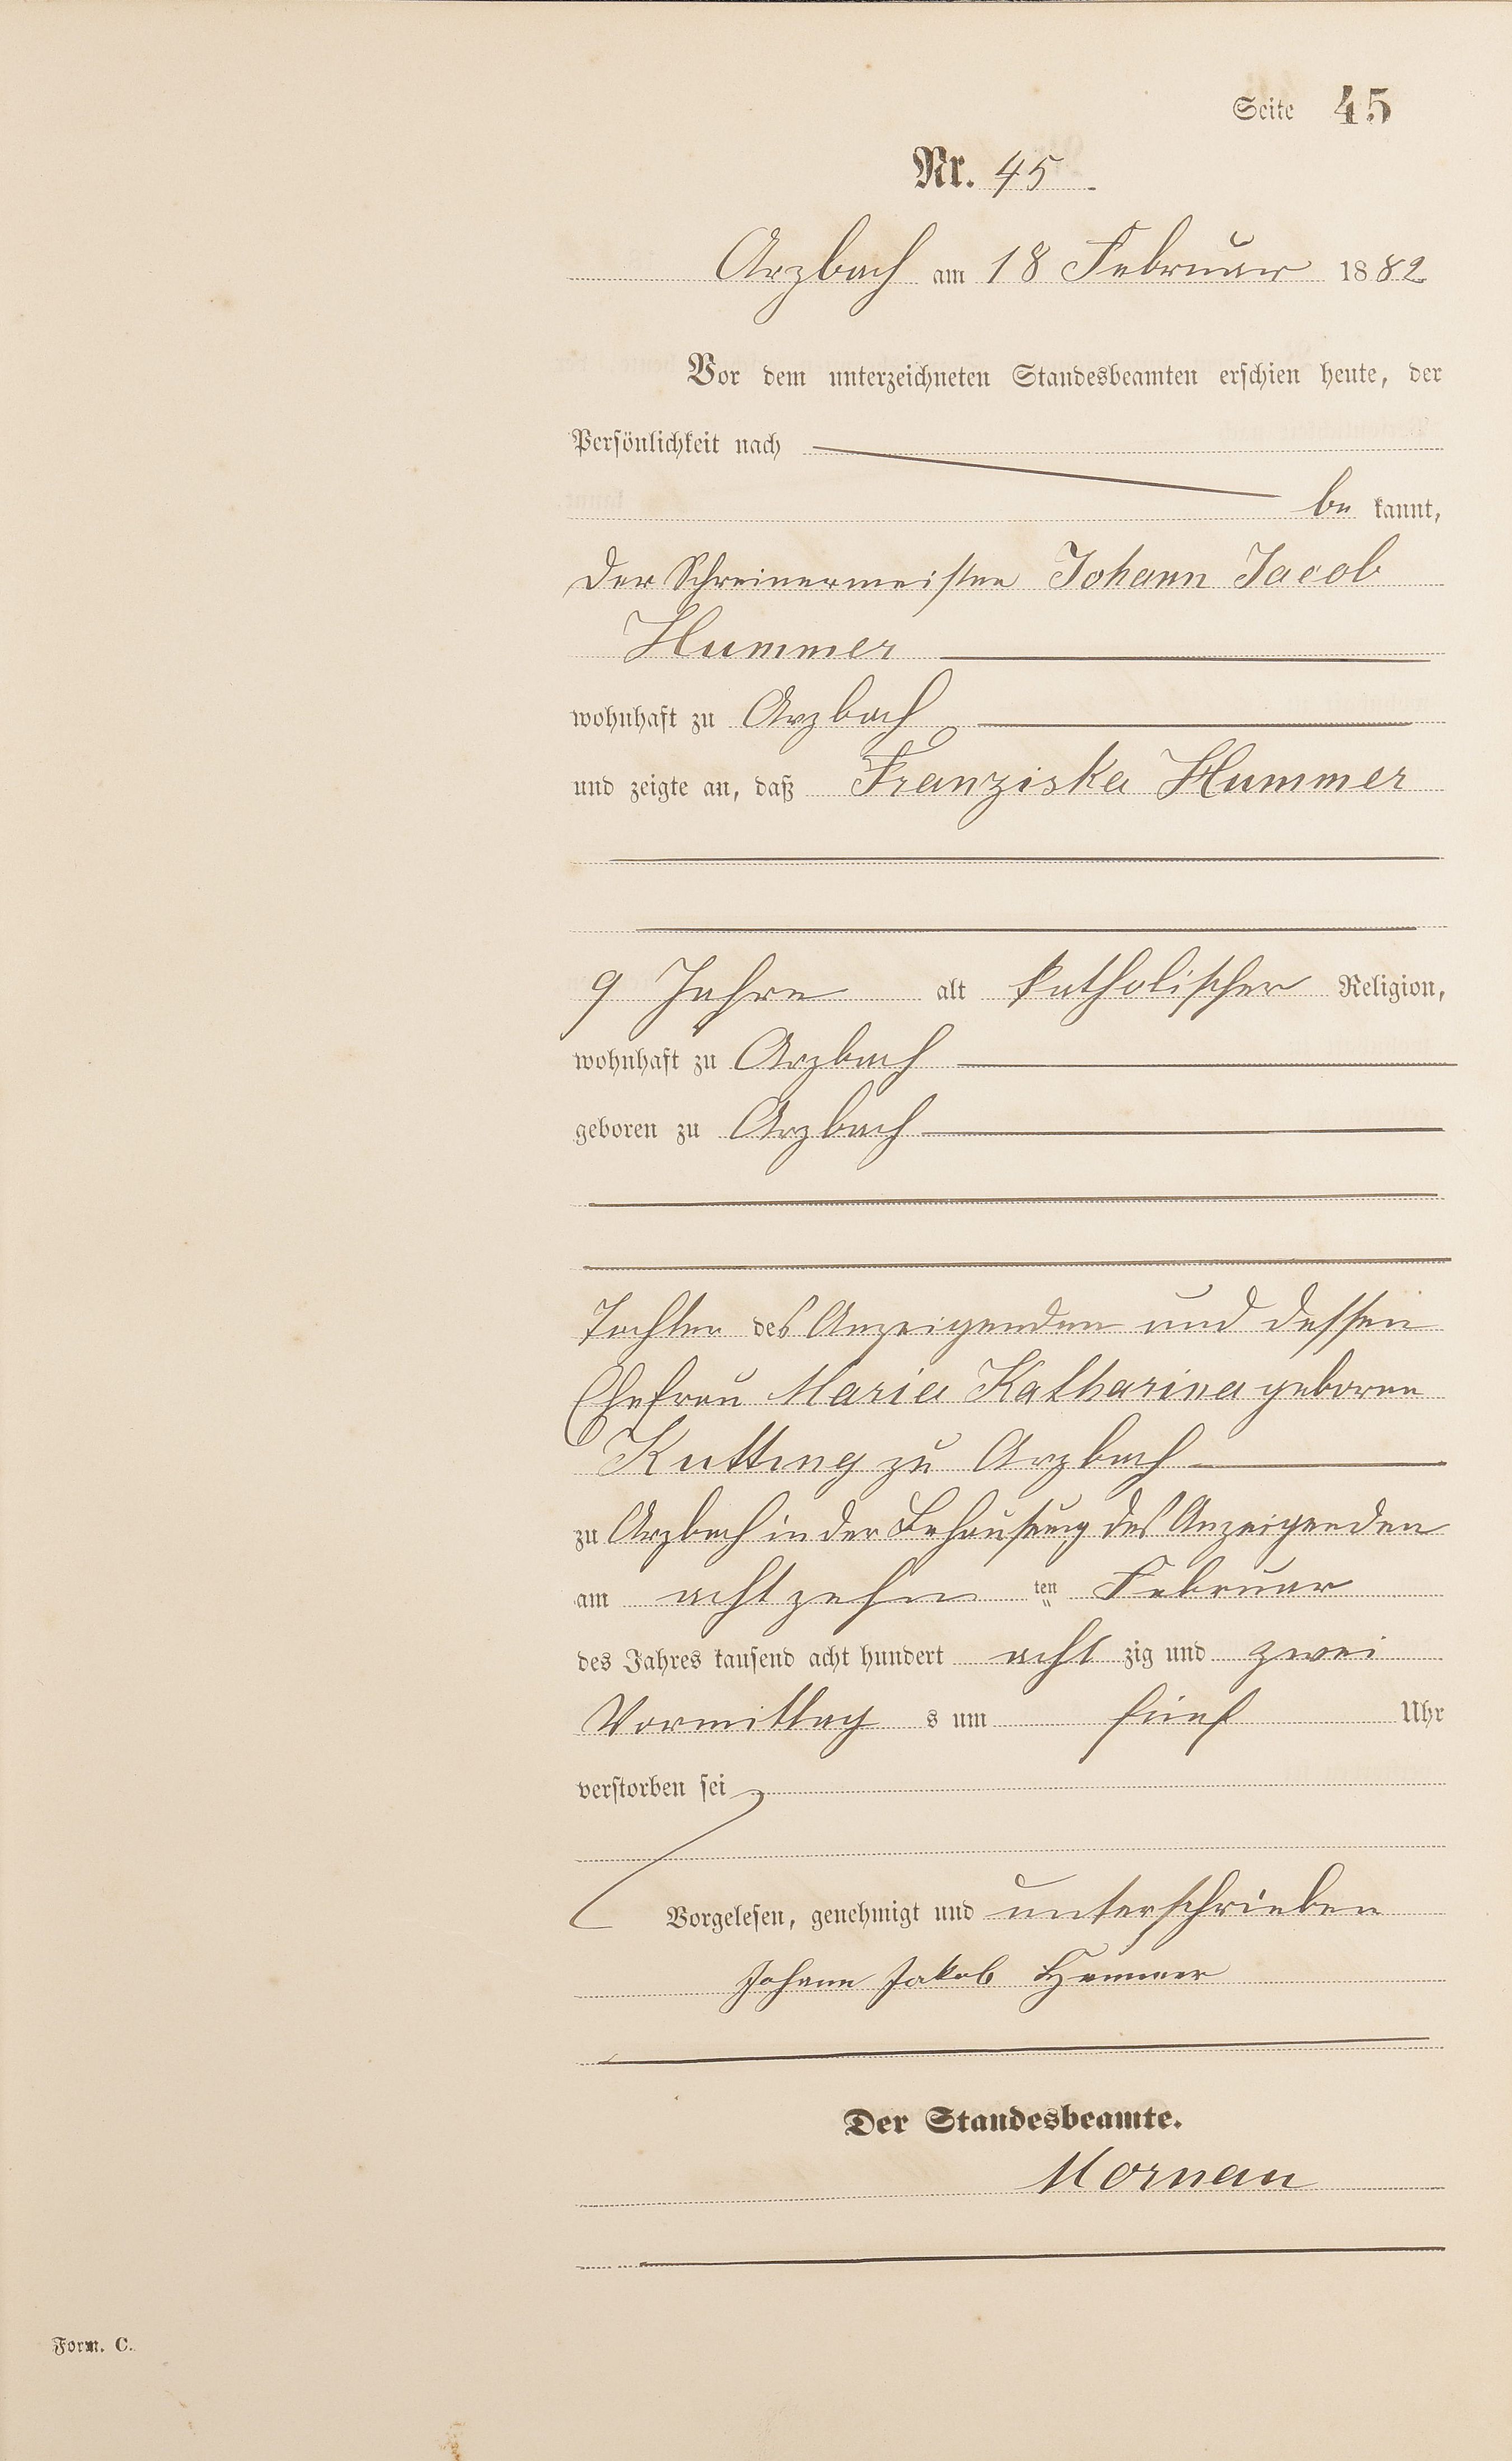 Seite 45
Nr. 45
Arzbach am 18 Februar 1882
Vor dem unterzeichneten Standesbeamten erschien heute, der
Persönlichkeit nach
be kannt,
der Schreinermeister Johann Jacob
Hummer
wohnhaft zu Arzbach
und zeigte an, daß Franziska Hummer
9 Jahre alt katholischer Religion,
wohnhaft zu Arzbach
geboren zu Arzbach
Tochter des Anzeigenden und dessen
Ehefrau Maria Katharina geborne
Kutting zu Arzbach
zu Arzbach in der Behausung des Anzeigenden
am achtzehn ten Februar
des Jahres tausend acht hundert acht zig und zwei
Vormittag s um fünf Uhr
verstorben sei
Vorgelesen, genehmigt und unterschrieben
Johann Jakob Hummer
Der Standesbeamte.
Mornau
Form. C.